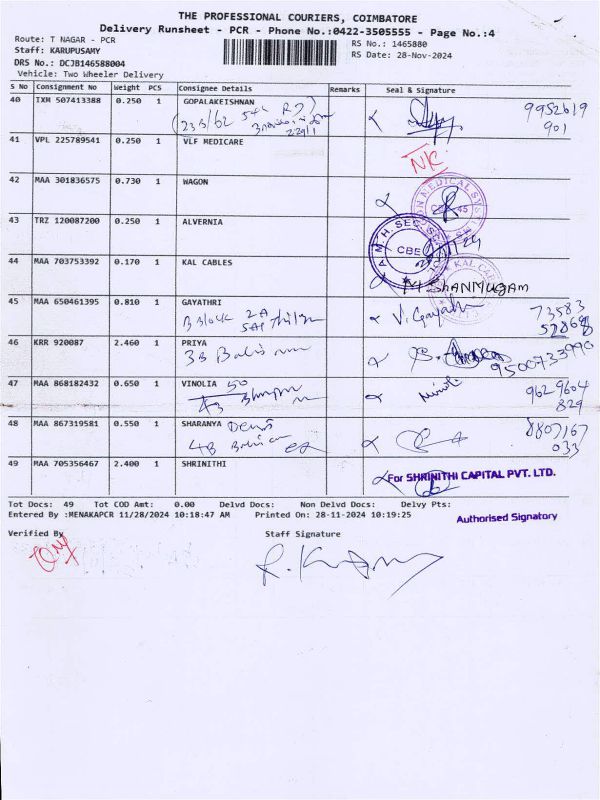 THE PROFESSIONAL COURIERS, COIMBATORE
Delivery Runsheet - PCR - Phone No.:0422-3505555 - Page No.:4
Route: T NAGAR - PCR
Staff: KARUPUSAMY
DRS No.: DCJB146588004
Vehicle: Two Wheeler Delivery
RS No.: 1465880
RS Date: 28-Nov-2024
S No Consignment No Weight PCS Consignee Details Remarks Seal & Signature
40 TXM 507413388 0.250 1 GOPALAKEISHNAN
9952619
901
41 VPL 225789541 0.250 1 VLF MEDICARE
42 MAA 301836575 0.730 1 WAGON
43 TRZ 120087200 0.250 1 ALVERNIA
CBE
44 MAA 703753392 0.170 1 KAL CABLES
SHANMUGAM
45 MAA 650461395 0.810 1 GAYATHRI
B Block 2A
V. Gayathri
73583
46 KRR 920087 2.460 1 PRIYA
3B
9500733990
47 MAA 868182432 0.650 1 VINOLIA
9629604
829
48 MAA 867319581 0.550 1 SHARANYA
4B
8807167
033
49 MAA 705356467 2.400 1 SHRINITHI
For SHRINITHI CAPITAL PVT. LTD.
Authorised Signatory
Tot Docs: 49 Tot COD Amt: 0.00 Delvd Docs: Non Delvd Docs: Delvy Pts:
Entered By :MENAKAPCR 11/28/2024 10:18:47 AM Printed On: 28-11-2024 10:19:25
Verified By Staff Signature